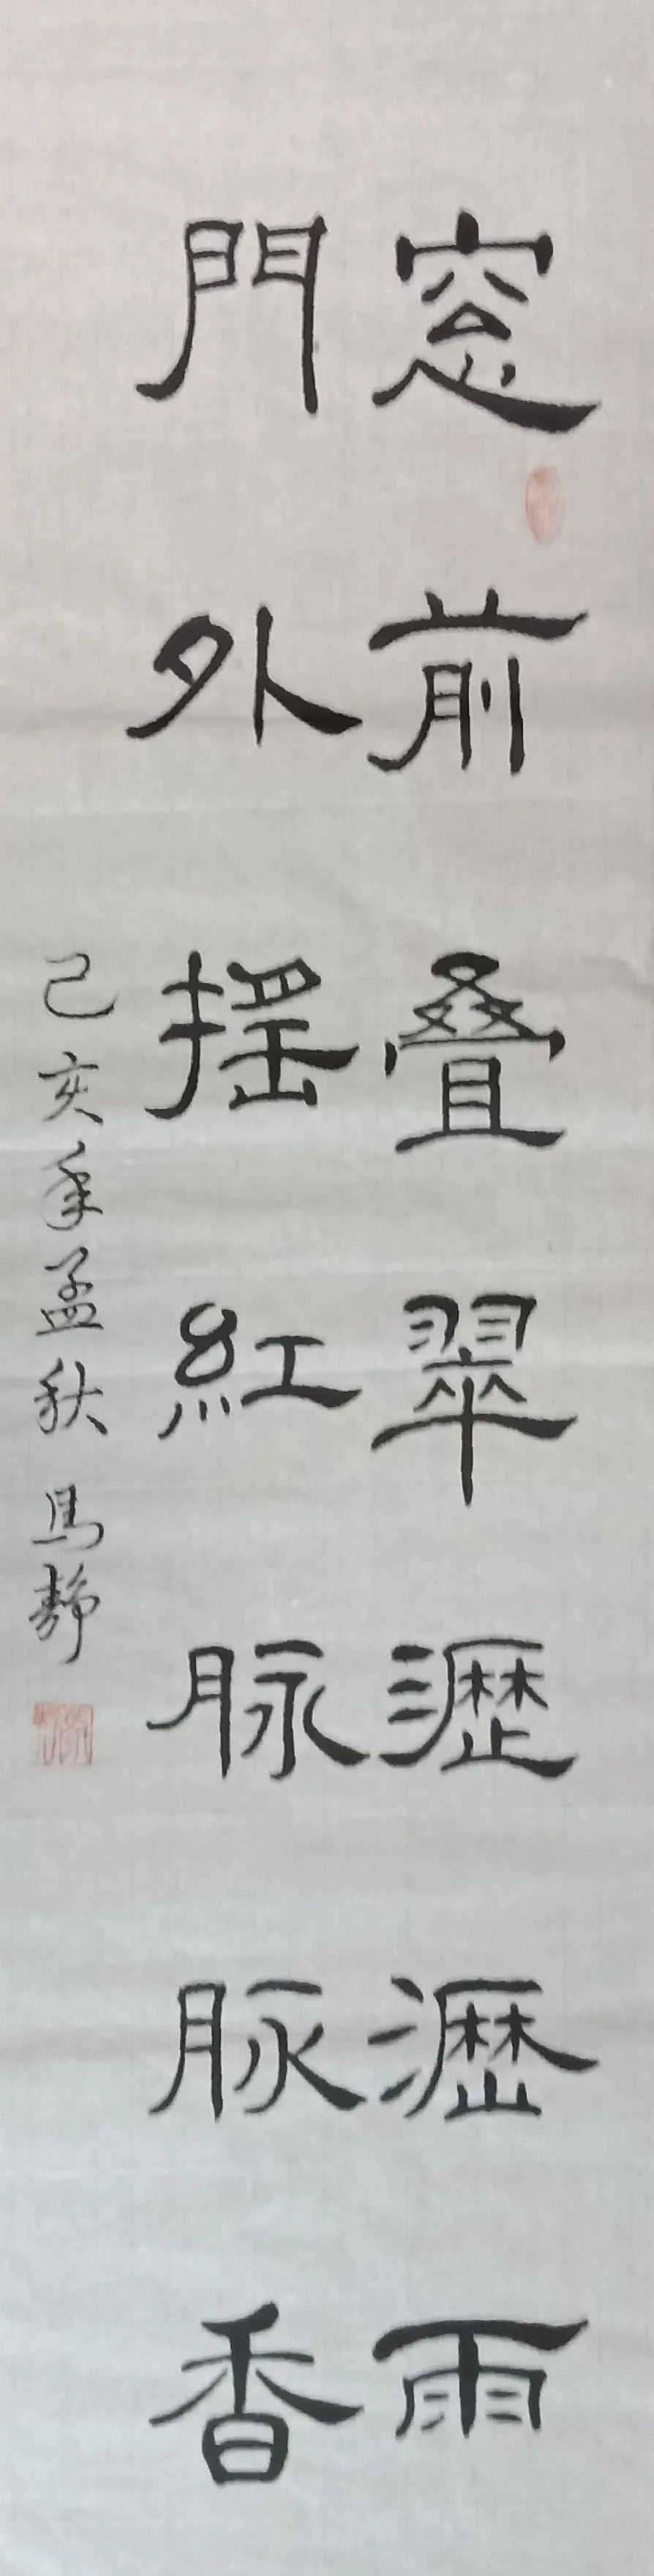 窓前叠翠瀝瀝雨
門外揺紅脉脉香
己亥年孟秋 馬靜